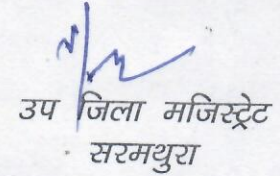 उप जिला मजिस्ट्रेट
सरमथुरा